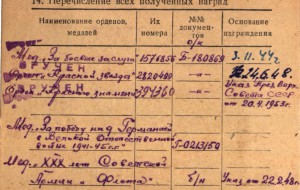 14. Перечисление всех полученных наград
Наименование орденов, медалей
Их номера
№№ документов
Основание награждения
б/н
Мед. "За боевые заслуги" 1576856 Б-180869 3.11.44г.
ВРУЧЕН
Орден "Красной звезды" 2820480 —"— 24.6.48.
ВРУЧЕН
знамени 394360 —"— Указ През. Верх. Совета СССР от 20.4.1953г.
Мед. "За победу над Германией в Великой Отечественной войне 1941-45гг" Г-0213150
Мед. "XXX лет Советской Армии и Флота" б/н Указ от 22.2.48г.